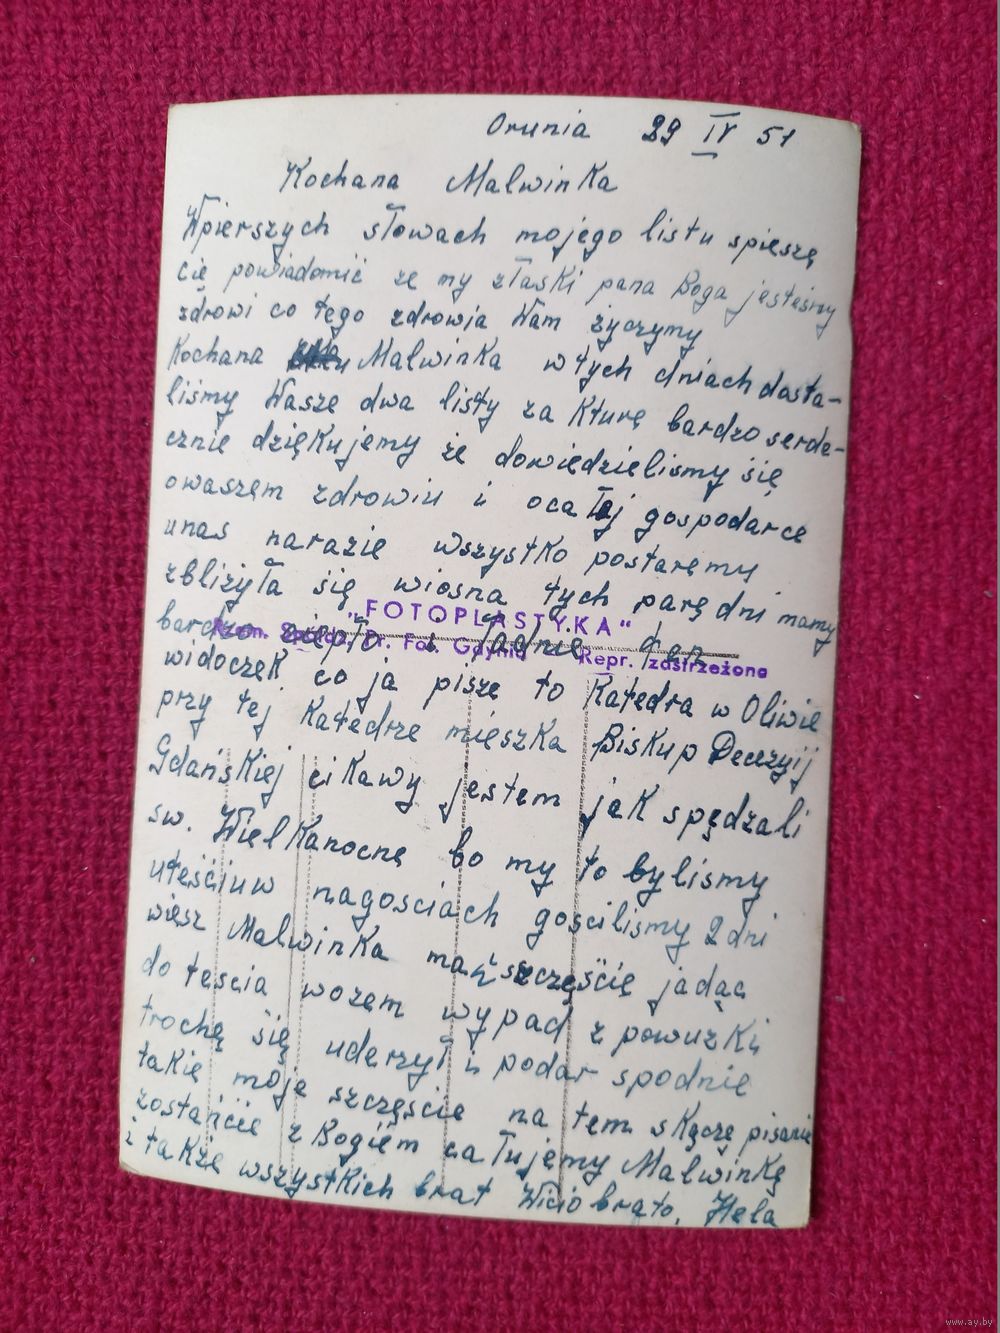 Orunia 29 IV 51
Kochana Malwinka
Wpierszych słowach mojego listu spieszę
cię powiadomić ze my złaski pana Boga jesteśmy
zdrowi co tego zdrowia Wam życzymy
Kochana Malwinka w tych dniach dosta-
liśmy Wasze dwa listy za Kturę bardzo serde-
cznie dziękujemy że dowiedzielismy się
owaszem zdrowiu i ocałej gospodarce
unas narazie wszystko postaremu
zbliżyła się wiosna tych parę dni mamy
„FOTOPLASTYKA"
bardzo ciepło i ładnie ten
Pr. Fot. Gdynia Repr. zastrzeżone
widoczek co ja pisze to Katedra w Oliwie
przy tej Katedrze mieszka Biskup Decezyij
Gdańskiej cikawy jestem jak spędzali
sw. WielKanocne bo my to bylismy
uteściuw nagosciach gościlismy 2 dni
wiesz Malwinka mań szczęście jadąc
do teścia wozem wypad z powuzki
trochę się uderzył i podar spodnie
takie moje szczęście na tem skączę pisanie
zostańcie z Bogiem całujemy Malwinkę
i także wszystkich brat Wicio brato. Hela
www.ay.by